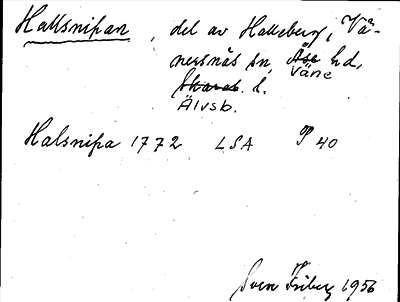 Hallsnipan, del av Halleberg, Vä-
nersnäs sn, Åse hd,
Väne
Skarab. l.
Älvsb.
Halsnipa 1772 LSA P 40
Sven Friberg 1956